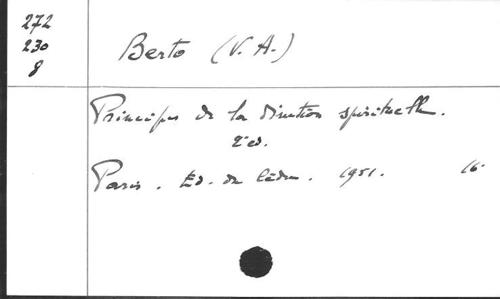 272
230
8
Berto (V. A.)
Principes de la direction spirituelle.
2e ed.
Paris. Ed. du Cèdre. 1951. 16°